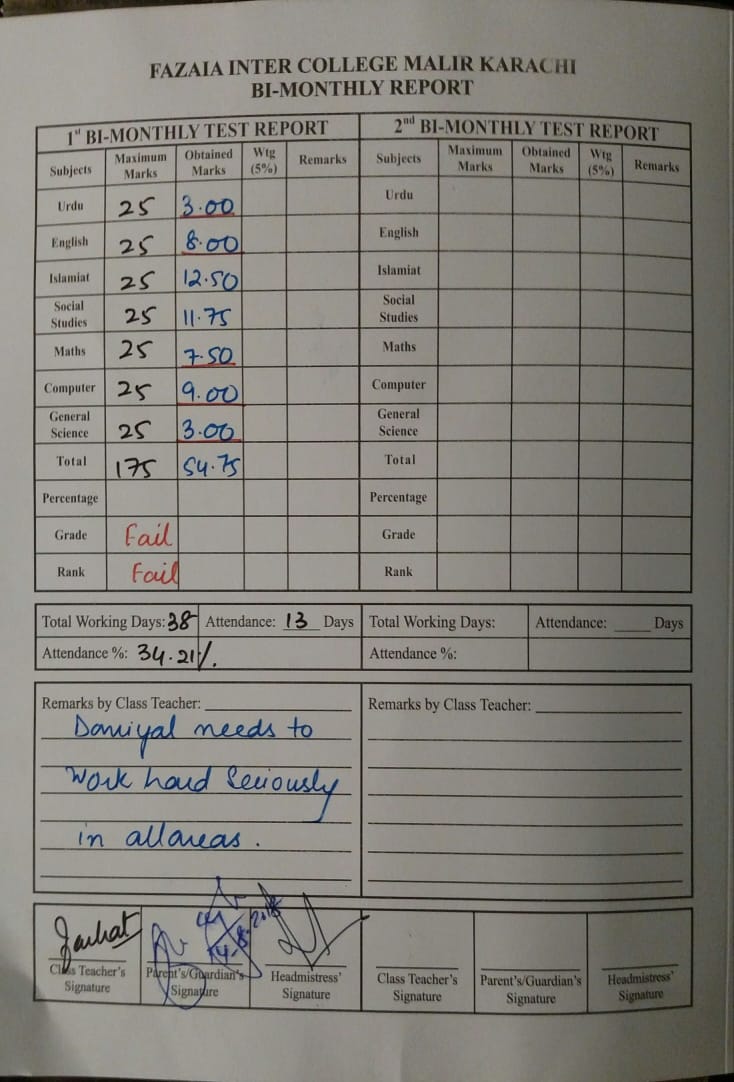 FAZAIA INTER COLLEGE MALIR KARACHI
BI-MONTHLY REPORT
1st BI-MONTHLY TEST REPORT 2nd BI-MONTHLY TEST REPORT
Subjects Maximum Marks Obtained Marks Wtg (5%) Remarks Subjects Maximum Marks Obtained Marks Wtg (5%) Remarks
Urdu 25 3.00 Urdu
English 25 8.00 English
Islamiat 25 12.50 Islamiat
Social Studies 25 11.75 Social Studies
Maths 25 7.50 Maths
Computer 25 9.00 Computer
General Science 25 3.00 General Science
Total 175 54.75 Total
Percentage Percentage
Grade Fail Grade
Rank Fail Rank
Total Working Days: 38 Attendance: 13 Days Total Working Days: Attendance: Days
Attendance %: 34.21% Attendance %:
Remarks by Class Teacher: Remarks by Class Teacher:
Daniyal needs to
work hard seriously
in all areas.
Class Teacher's Signature Parent's/Guardian's Signature Headmistress' Signature Class Teacher's Signature Parent's/Guardian's Signature Headmistress' Signature